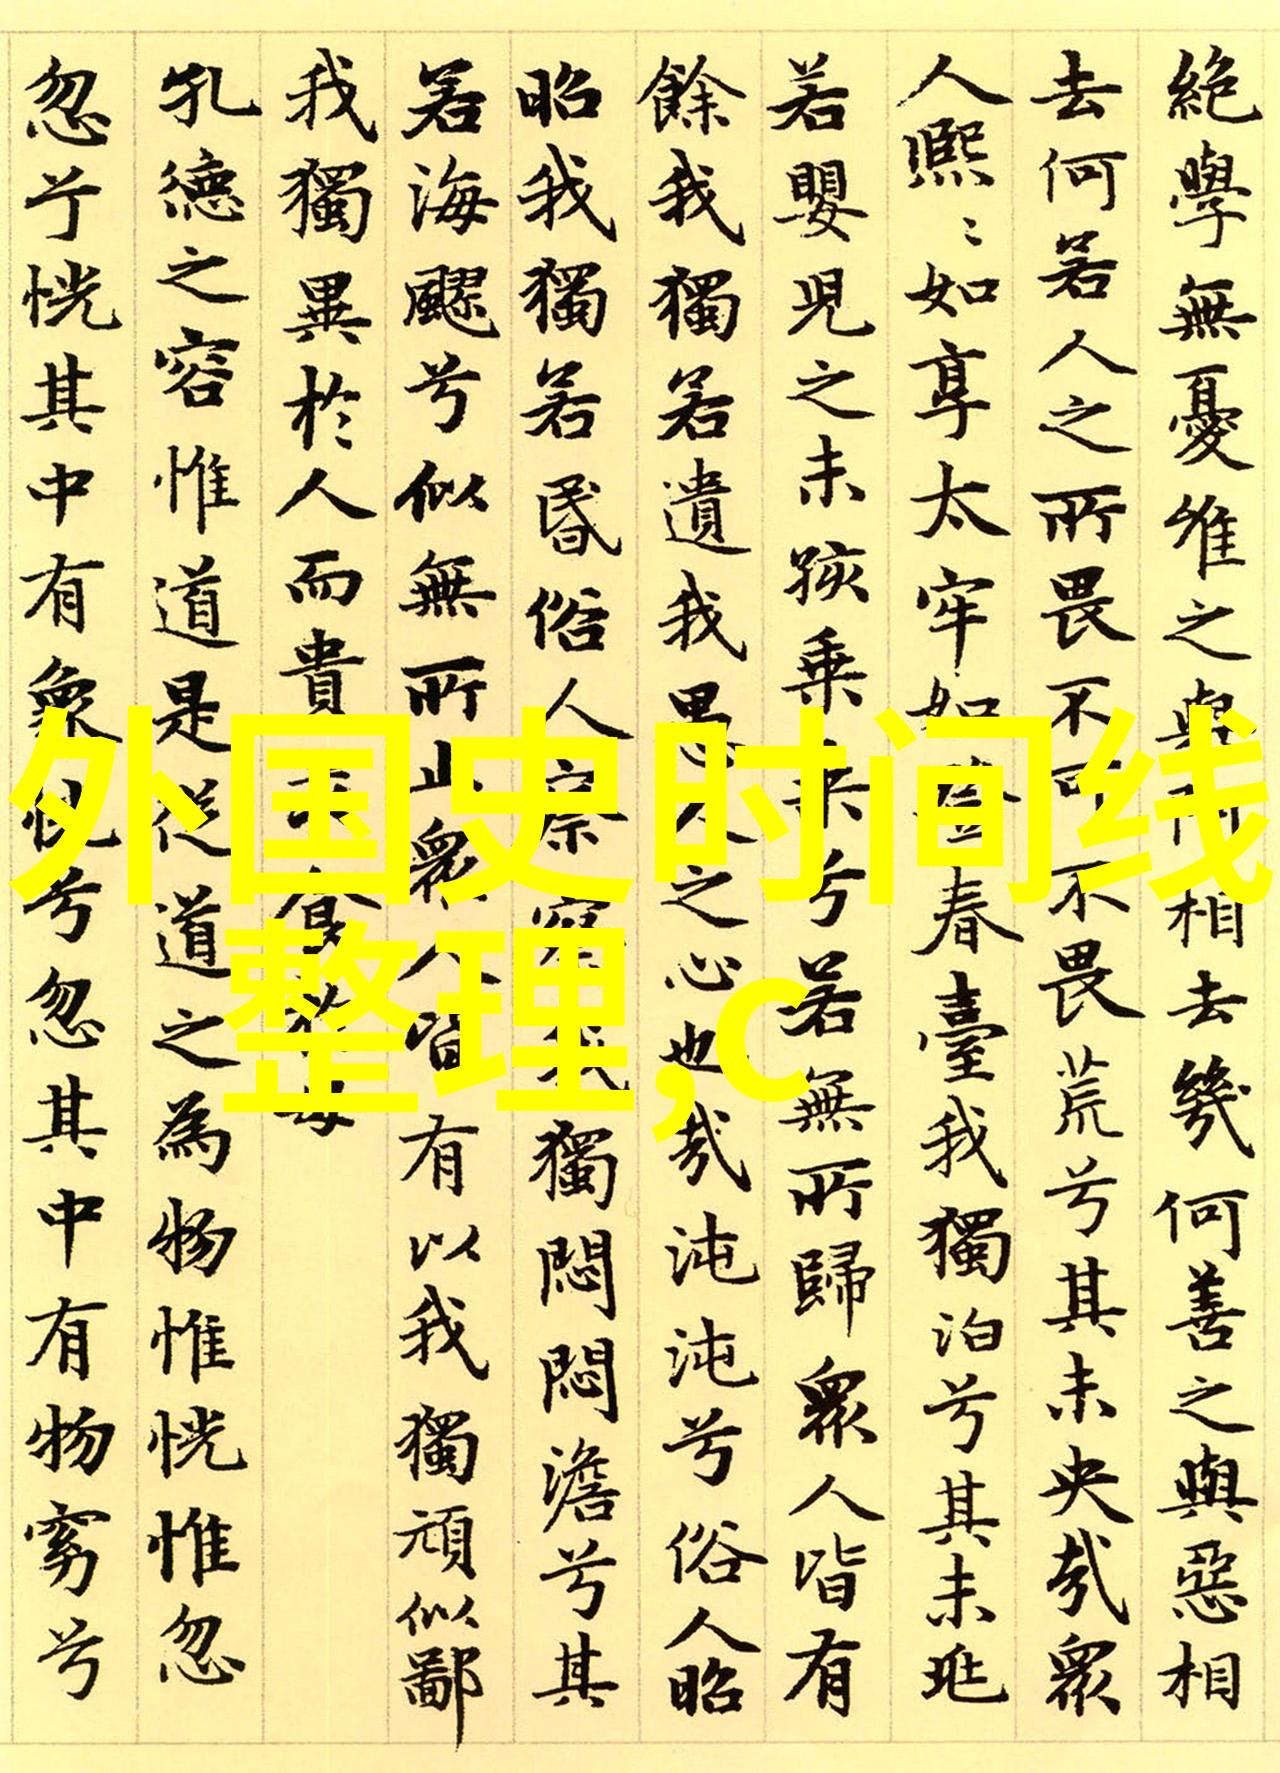 絶學無憂唯之與阿相去幾何善之與惡相
去何若人之所畏不可不畏荒兮其未央哉衆
人熙〻如享太牢如登春臺我獨泊兮其未兆
若嬰兒之未孩乗乗兮若無所歸衆人皆有
餘我獨若遺我愚人之心也哉沌沌兮俗人昭
昭我獨若昏俗人察察我獨悶悶澹兮其
若海飂兮似無所止衆人皆有以我獨頑似鄙
我獨異於人而貴食母
孔德之容惟道是從道之為物惟恍惟忽
忽兮恍其中有象恍兮忽其中有物窈兮
外国史时间线
整理,c